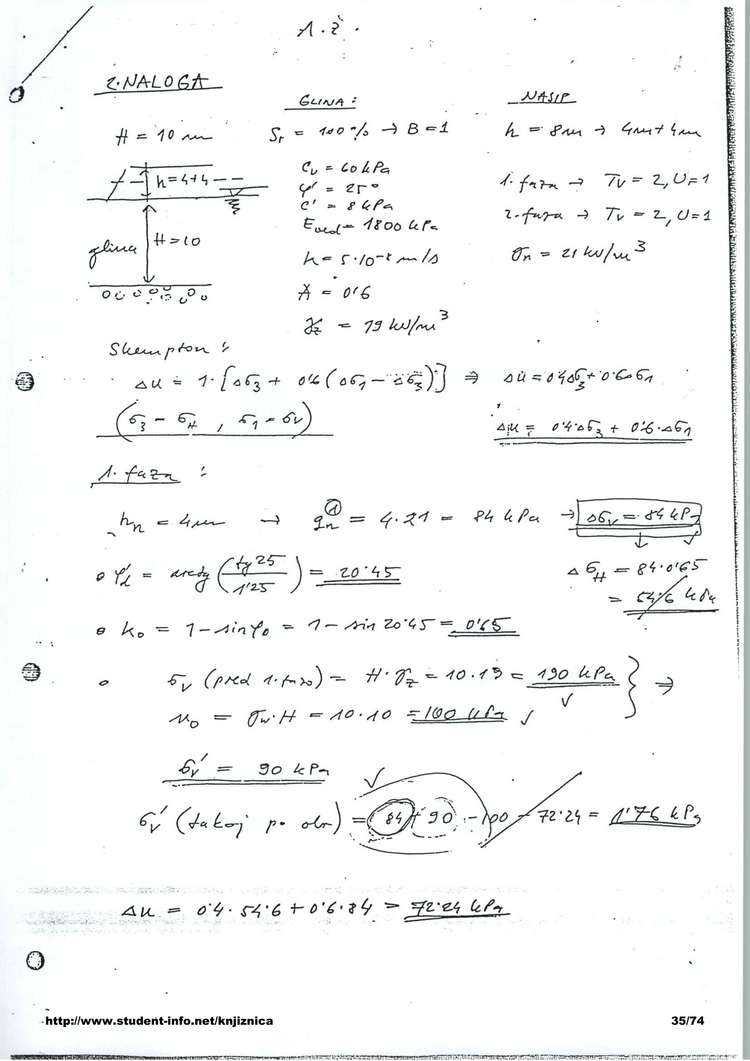 1. Ž.
2. NALOGA
GLINA:
NASIP
H = 10 m
Sr = 100% → B = 1
h = 8m → 4m + 4m
h = 4+4
Cu = 60 kPa
φ' = 25°
c' = 8 kPa
Eoed = 1800 kPa
1. faza → Tv = 2, U = 1
2. faza → Tv = 2, U = 1
glina
H = 10
A = 0'6
γz = 19 kN/m³
σn = 21 kN/m³
Skempton:
Δu = 1·[Δσ3 + 0'6(Δσ1 − Δσ3)] ⇒ Δu = 0'4Δσ3 + 0'6Δσ1
(σ3 − σH, σ1 − σV)
Δu = 0'4·Δσ3 + 0'6·Δσ1
1. faza:
hn = 4m → qn① = 4·21 = 84 kPa → Δσv = 84 kPa
φ'd = arctg (tg 25 / 1'25) = 20'45
ΔσH = 84·0'65
= 54'6 kPa
k0 = 1 − sin φ0 = 1 − sin 20'45 = 0'65
σv (pred 1. fazo) = H·γz = 10·19 = 190 kPa ⇒
u0 = σw·H = 10·10 = 100 kPa
σv' = 90 kPa
σv' (takoj po obr) = 84 + 90 − 100 − 72'24 = 1'76 kPa
Δu = 0'4·54'6 + 0'6·84 = 72'24 kPa
http://www.student-info.net/knjiznica
35/74